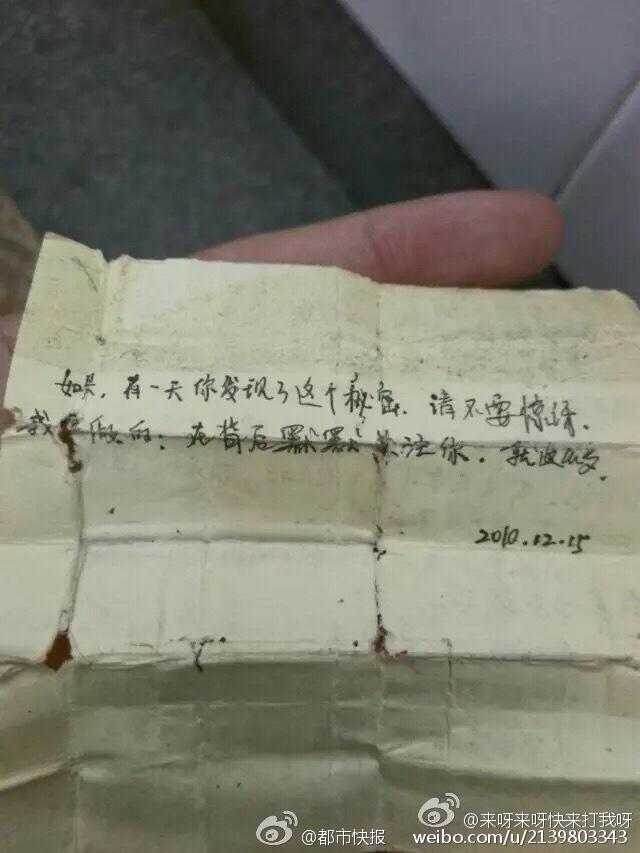 如果,有一天你发现了这个秘密,请不要惊讶,
我 做的:在背后默默关注你,就这么多。
2010.12.15
@都市快报
@来呀来呀快来打我呀
weibo.com/u/2139803343